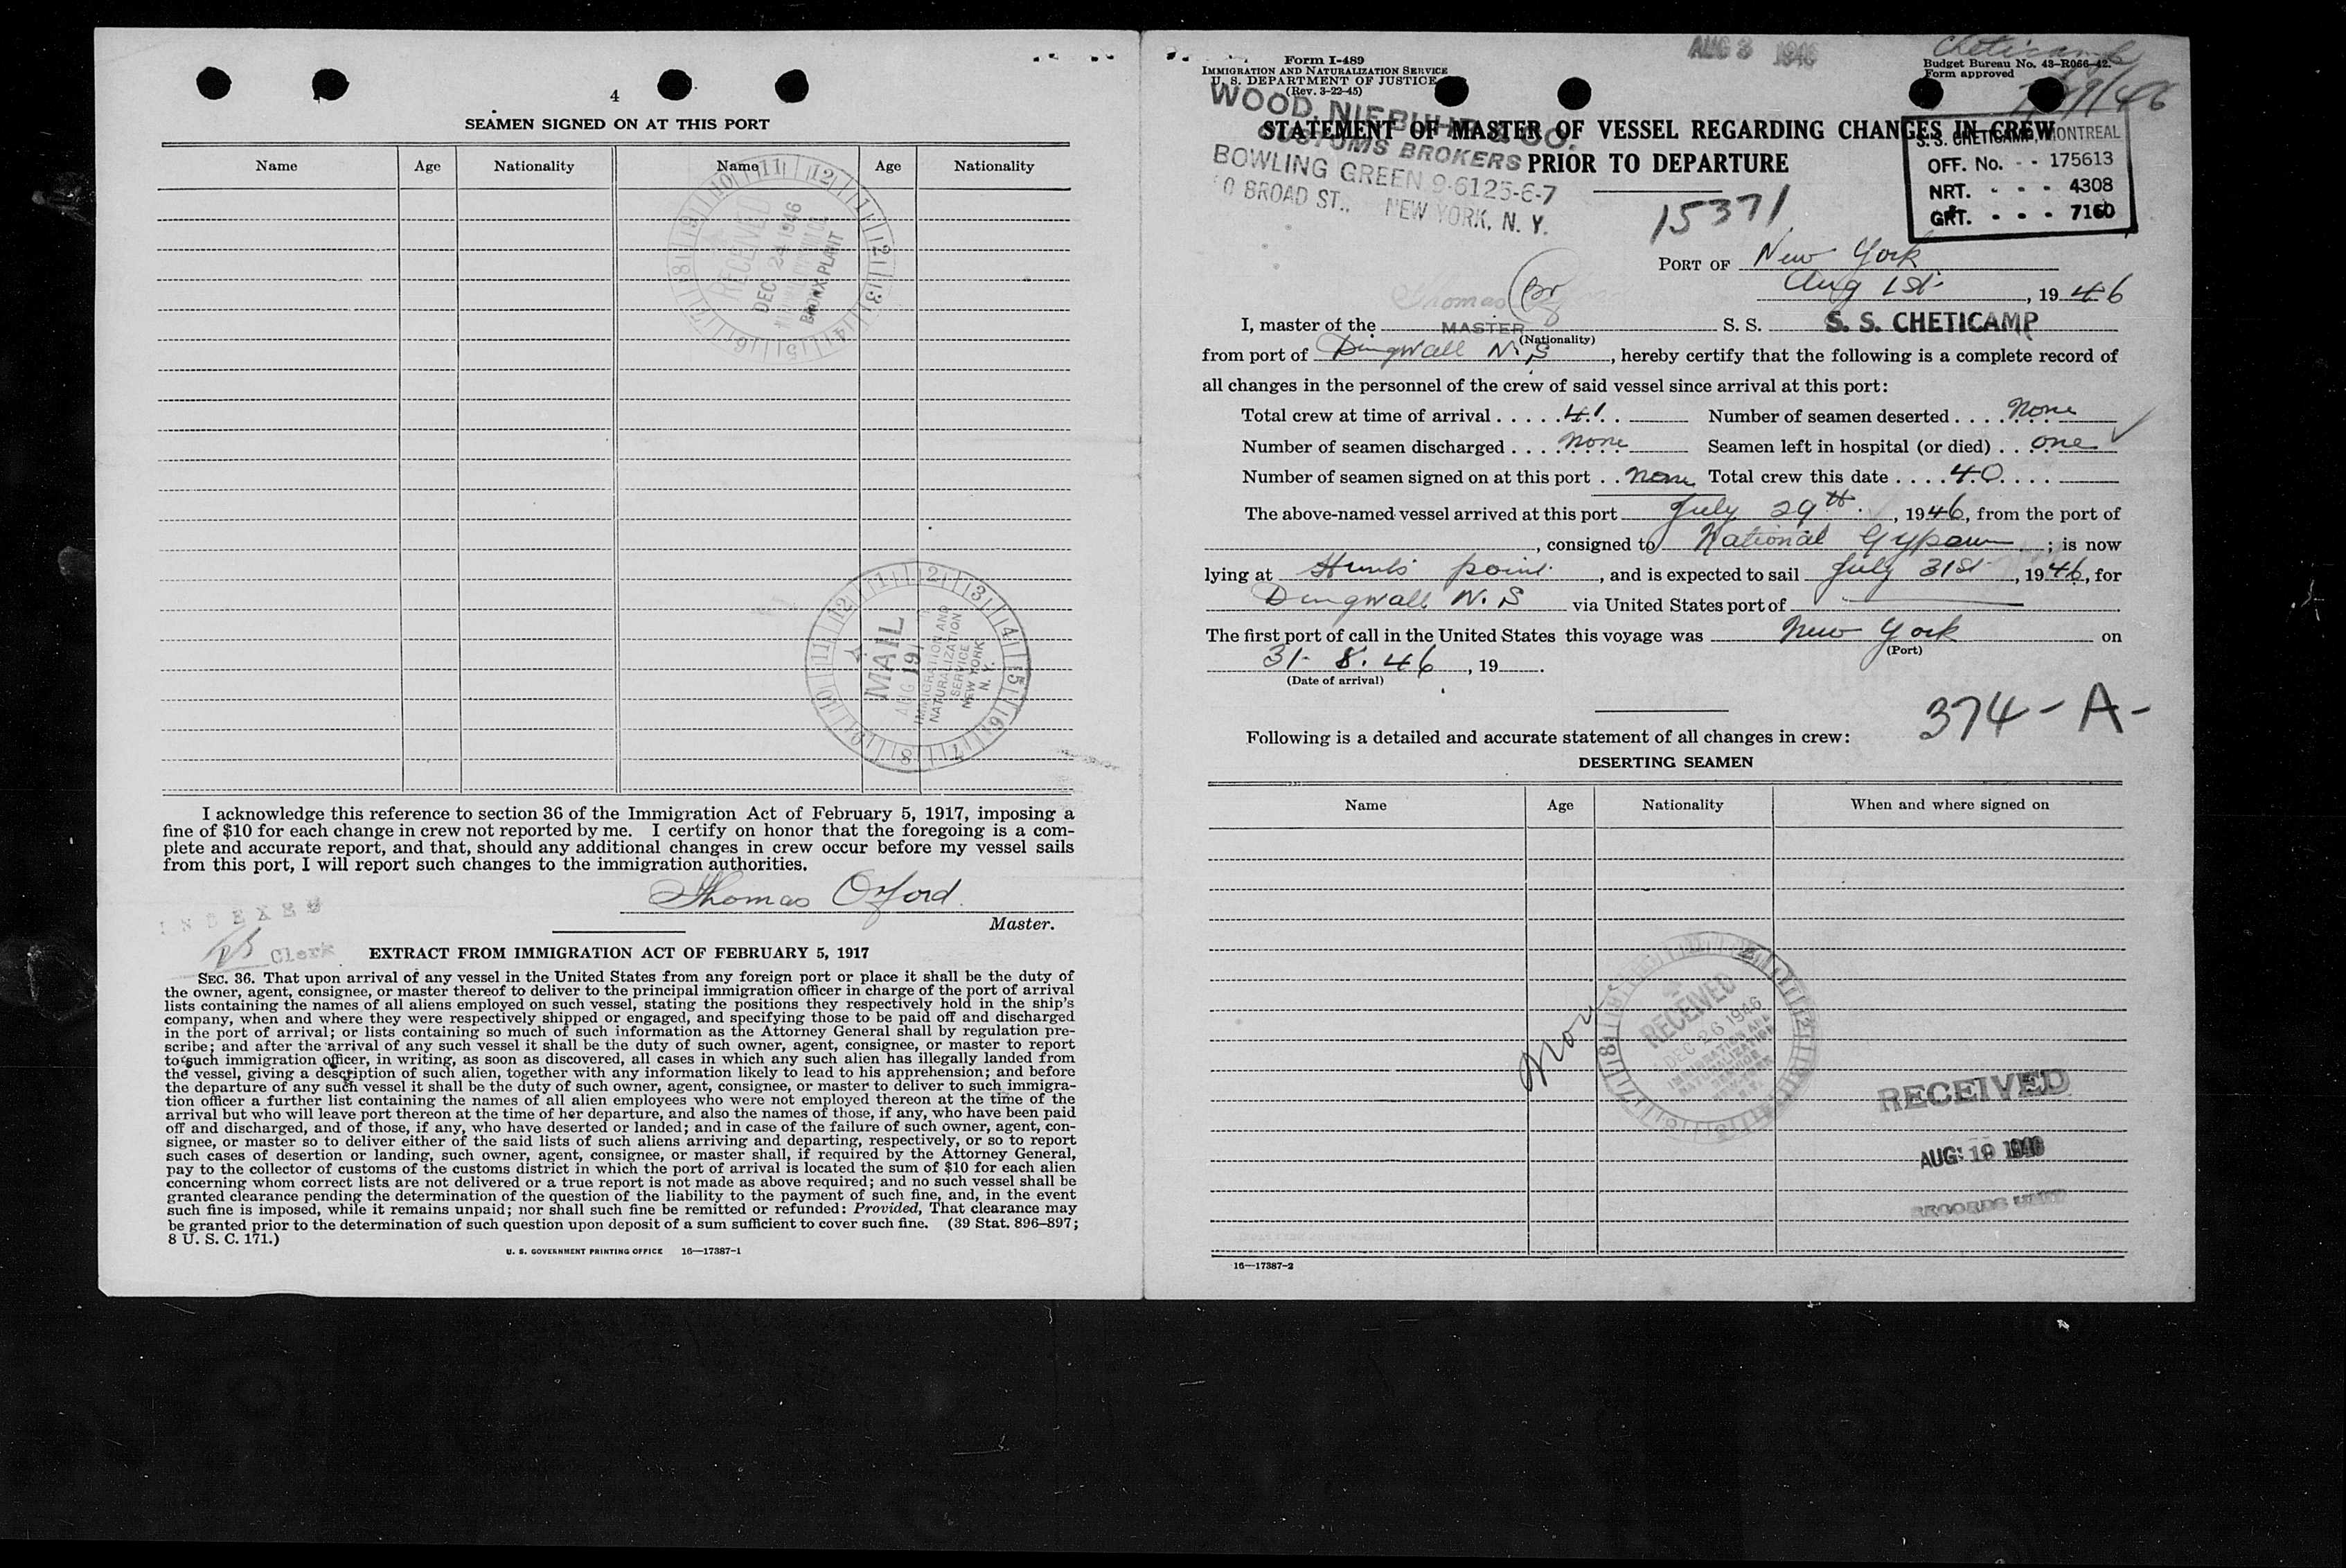 4
SEAMEN SIGNED ON AT THIS PORT
Name Age Nationality Name Age Nationality
11 12 1 2 3 4 5 6 8 9 10
RECEIVED
DEC 24 1946
BRONX PLANT
12 1 2 3 4 5 6 7 8 10 11
MAIL
AUG 19
IMMIGRATION AND
NATURALIZATION
SERVICE
NEW YORK
N. Y.
I acknowledge this reference to section 36 of the Immigration Act of February 5, 1917, imposing a
fine of $10 for each change in crew not reported by me. I certify on honor that the foregoing is a com-
plete and accurate report, and that, should any additional changes in crew occur before my vessel sails
from this port, I will report such changes to the immigration authorities.
Thomas Oxford
Master.
INDEXED
Clerk
EXTRACT FROM IMMIGRATION ACT OF FEBRUARY 5, 1917
SEC. 36. That upon arrival of any vessel in the United States from any foreign port or place it shall be the duty of
the owner, agent, consignee, or master thereof to deliver to the principal immigration officer in charge of the port of arrival
lists containing the names of all aliens employed on such vessel, stating the positions they respectively hold in the ship's
company, when and where they were respectively shipped or engaged, and specifying those to be paid off and discharged
in the port of arrival; or lists containing so much of such information as the Attorney General shall by regulation pre-
scribe; and after the arrival of any such vessel it shall be the duty of such owner, agent, consignee, or master to report
to such immigration officer, in writing, as soon as discovered, all cases in which any such alien has illegally landed from
the vessel, giving a description of such alien, together with any information likely to lead to his apprehension; and before
the departure of any such vessel it shall be the duty of such owner, agent, consignee, or master to deliver to such immigra-
tion officer a further list containing the names of all alien employees who were not employed thereon at the time of the
arrival but who will leave port thereon at the time of her departure, and also the names of those, if any, who have been paid
off and discharged, and of those, if any, who have deserted or landed; and in case of the failure of such owner, agent, con-
signee, or master so to deliver either of the said lists of such aliens arriving and departing, respectively, or so to report
such cases of desertion or landing, such owner, agent, consignee, or master shall, if required by the Attorney General,
pay to the collector of customs of the customs district in which the port of arrival is located the sum of $10 for each alien
concerning whom correct lists are not delivered or a true report is not made as above required; and no such vessel shall be
granted clearance pending the determination of the question of the liability to the payment of such fine, and, in the event
such fine is imposed, while it remains unpaid; nor shall such fine be remitted or refunded: Provided, That clearance may
be granted prior to the determination of such question upon deposit of a sum sufficient to cover such fine. (39 Stat. 896–897;
8 U. S. C. 171.)
U. S. GOVERNMENT PRINTING OFFICE 16—17387-1
AUG 3 1946
Cheticamp
7/29/46
Form I-489
IMMIGRATION AND NATURALIZATION SERVICE
U. S. DEPARTMENT OF JUSTICE
(Rev. 3-22-45)
Budget Bureau No. 43-R066-42.
Form approved
WOOD, NIEBUHR & CO.
CUSTOMS BROKERS
BOWLING GREEN 9-6125-6-7
0 BROAD ST., NEW YORK, N. Y.
STATEMENT OF MASTER OF VESSEL REGARDING CHANGES IN CREW
PRIOR TO DEPARTURE
S. S. CHETICAMP, MONTREAL
OFF. No. - - 175613
NRT. - - - 4308
GRT. - - - 7160
15371
PORT OF New York
Aug 1st , 19 46
Thomas
Br
I, master of the MASTER S. S. S. S. CHETICAMP
(Nationality)
from port of Dingwall N. S , hereby certify that the following is a complete record of
all changes in the personnel of the crew of said vessel since arrival at this port:
Total crew at time of arrival . . . . . 41 Number of seamen deserted . . . . None
Number of seamen discharged . . . . None Seamen left in hospital (or died) . . one
Number of seamen signed on at this port . . None Total crew this date . . . . 40
The above-named vessel arrived at this port July 29th , 1946, from the port of
, consigned to National Gypsum ; is now
lying at Hunts point , and is expected to sail July 31st , 1946, for
Dingwall N. S via United States port of
The first port of call in the United States this voyage was New York on
(Port)
31- 8. 46 , 19 .
(Date of arrival)
374-A-
Following is a detailed and accurate statement of all changes in crew:
DESERTING SEAMEN
Name Age Nationality When and where signed on
RECEIVED
DEC 26 1946
IMMIGRATION AND
NATURALIZATION
SERVICE
RECEIVED
AUG 19 1946
RECORDS UNIT
16—17387-2